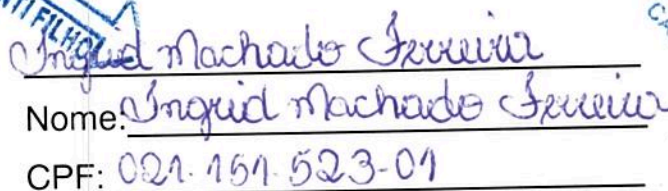 FILHO
Ingrid Machado Ferreira
Nome: Ingrid Machado Ferreira
CPF: 021.151.523-01